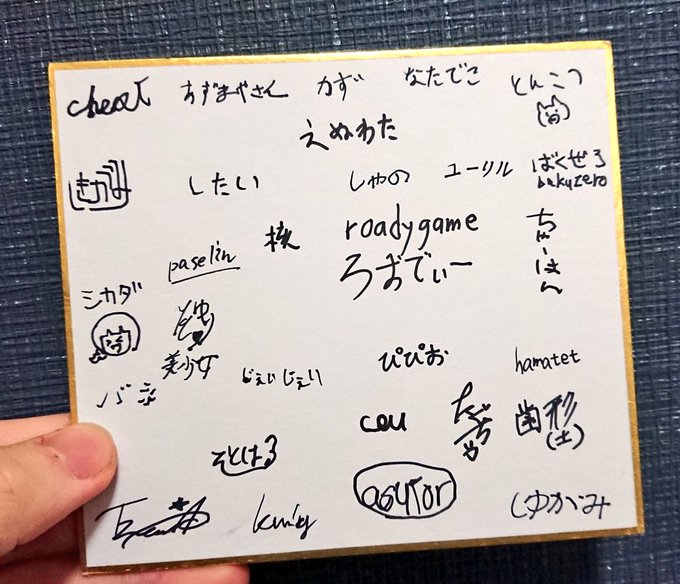 cheat
あずまやさん
かず
なたでこ
とんこつ
えぬわた
きがみ
したい
しゃの
ユーリル
ばくぜろ
bakuzero
paselin
核
roadygame
ろおでぃー
ちゃーはん
シカダ
美少女
じぇいじぇい
ぴぴお
hamatet
cou
歯形
(土)
そとはる
asuTor
しゆがみ